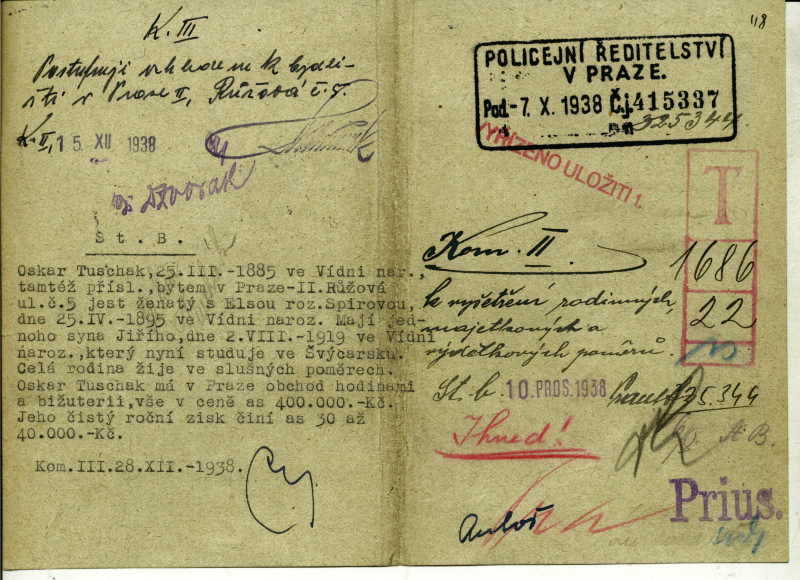 K. III
Postupuji vzhledem k bydli-
šti v Praze II, Růžová č. 5.
K. II, 15 XII 1938
Dvořak
S t. B.
Oskar Tuschak,25.III.-1885 ve Vídni nar.,
tamtéž přísl.,bytem v Praze-II.Růžová
ul.č.5 jest ženatý s Elsou roz.Spirovou,
dne 25.IV.-1895 ve Vídni naroz. Mají jed-
noho syna Jiřího,dne 2.VIII.-1919 ve Vídni
naroz.,který nyní studuje ve Švýcarsku.
Celá rodina žije ve slušných poměrech.
Oskar Tuschak má v Praze obchod hodinami
a bižuterií,vše v ceně as 400.000.-Kč.
Jeho čistý roční zisk činí as 30 až
40.000.-Kč.
Kom.III.28.XII.-1938.
118
POLICEJNÍ ŘEDITELSTVÍ
V PRAZE.
Pod. -7. X. 1938 Čj. 415337
325344
VYŘÍZENO ULOŽITI 1.
T
1686
22
Kom. II.
k vyšetření rodinných,
majetkových a
výdělkových poměrů.
St. b. 10. PROS. 1938
25.344
Ihned!
St B.
Prius.